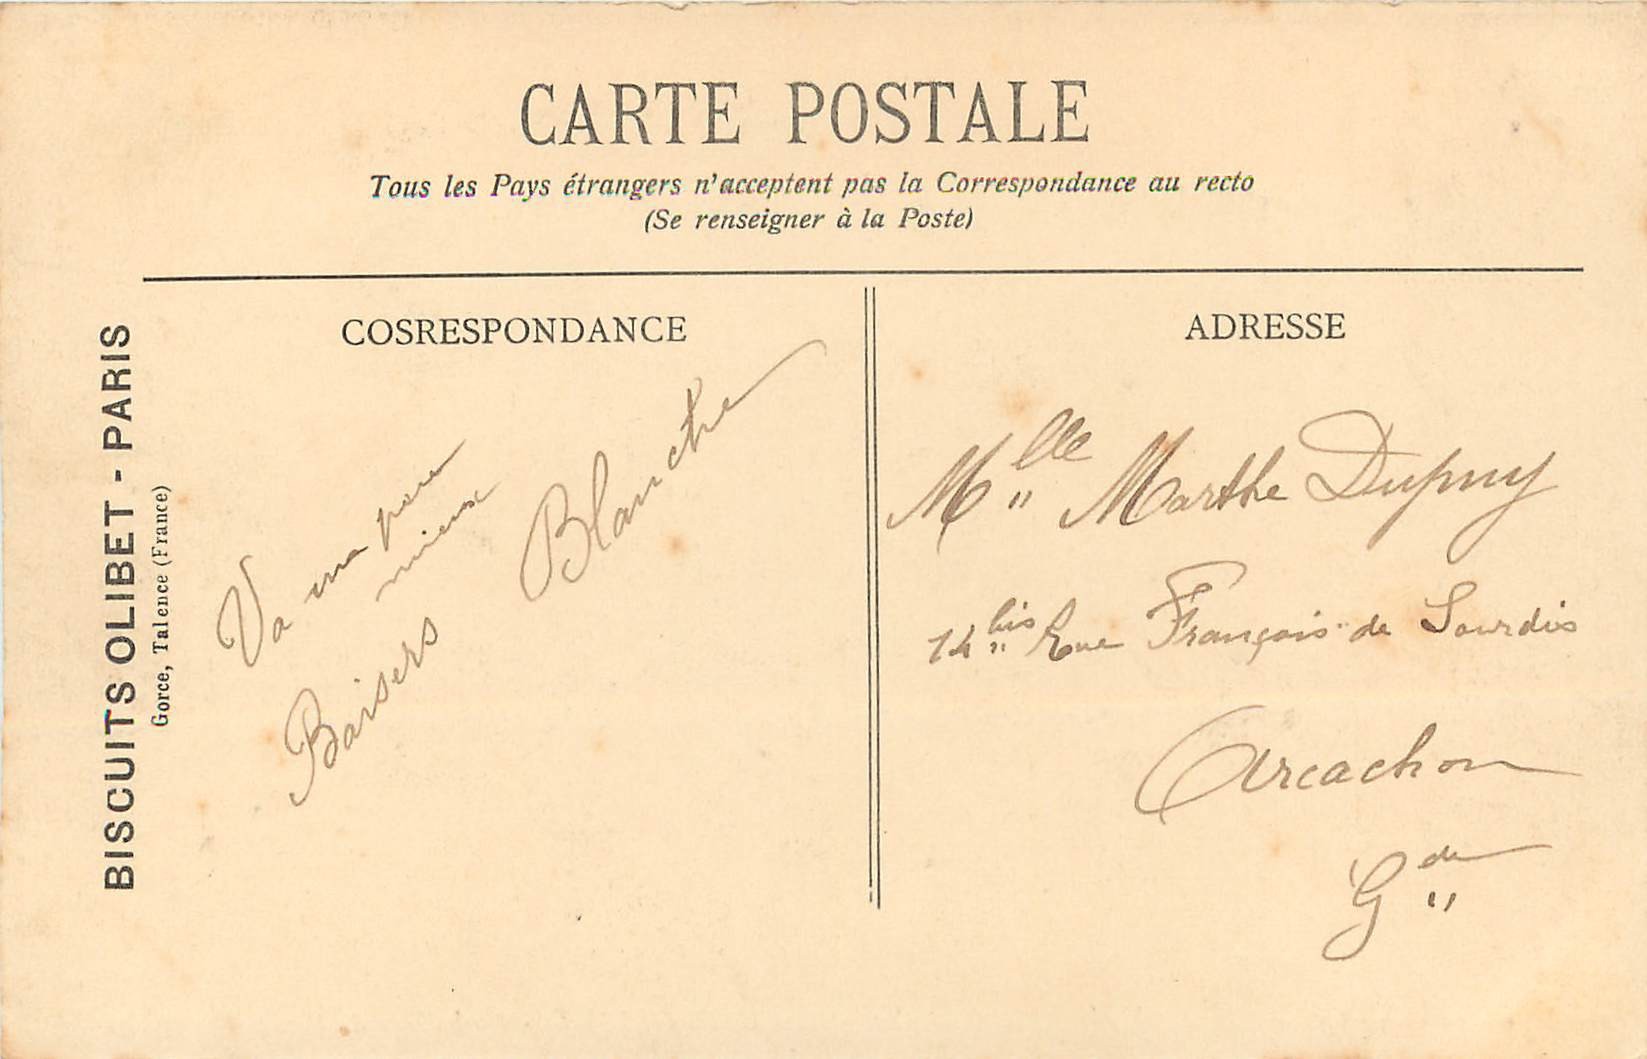 CARTE POSTALE
Tous les Pays étrangers n'acceptent pas la Correspondance au recto
(Se renseigner à la Poste)
BISCUITS OLIBET - PARIS
Gorce, Talence (France)
COSRESPONDANCE
Va ma
mieux
Baisers
Blanche
ADRESSE
Mlle Marthe Dupuy
14 bis Rue François de Sourdis
Arcachon
Gde